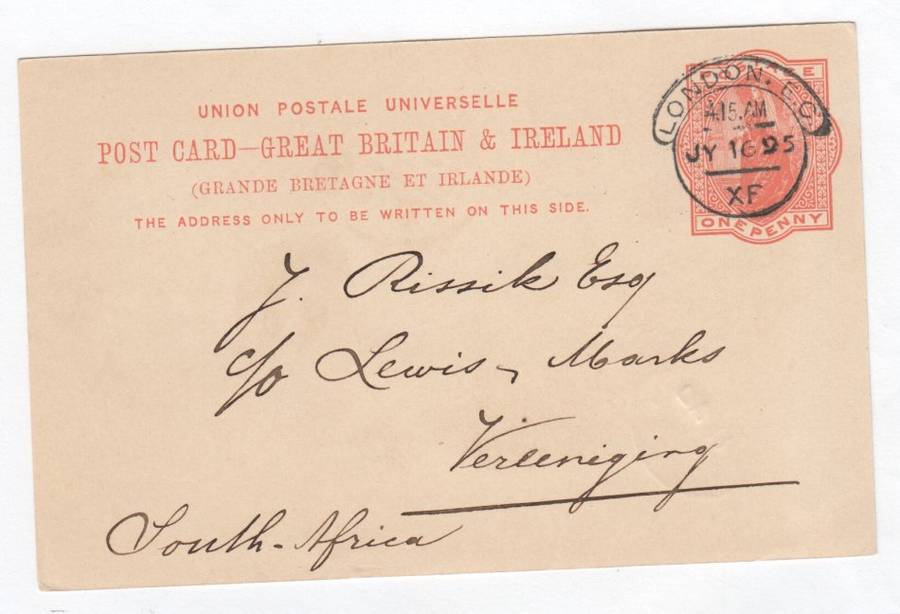 UNION POSTALE UNIVERSELLE
POST CARD—GREAT BRITAIN & IRELAND
(GRANDE BRETAGNE ET IRLANDE)
THE ADDRESS ONLY TO BE WRITTEN ON THIS SIDE.
POSTAGE
ONE PENNY
LONDON. E.C.
4.15. AM
JY 16 95
XF
J. Rissik Esq
c/o Lewis & Marks
Vereeniging
South-Africa